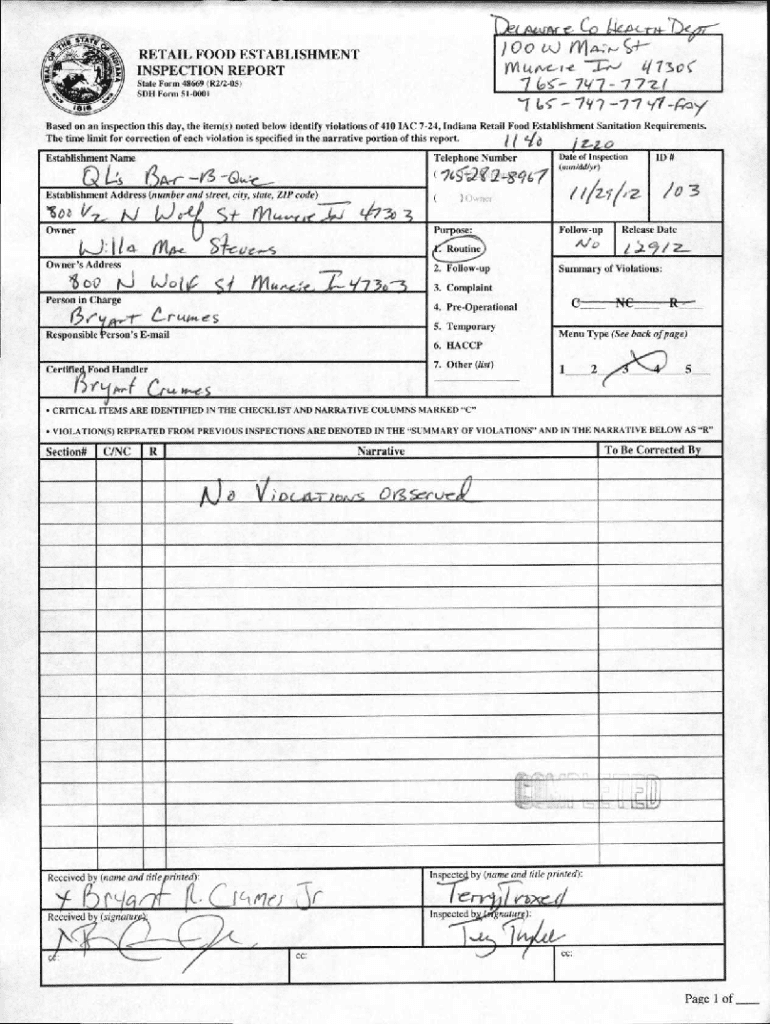 Delaware Co Health Dept
100 W Main St
Muncie In 47305
765-747-7721
765-747-7747-fax
RETAIL FOOD ESTABLISHMENT
INSPECTION REPORT
State Form 48669 (R2/2-05)
SDH Form 51-0001
Based on an inspection this day, the item(s) noted below identify violations of 410 IAC 7-24, Indiana Retail Food Establishment Sanitation Requirements.
The time limit for correction of each violation is specified in the narrative portion of this report.
1140 1220
Establishment Name
QL's Bar-B-Que
Telephone Number
(765-282-8967
( ) Owner
Date of Inspection
(mm/dd/yr)
11/29/12
ID #
103
Establishment Address (number and street, city, state, ZIP code)
800 1/2 N Wolf St Muncie In 47303
Owner
Willa Mae Stevens
Purpose:
1. Routine
2. Follow-up
3. Complaint
4. Pre-Operational
5. Temporary
6. HACCP
7. Other (list)
Follow-up
No
Release Date
12912
Owner's Address
800 N Wolf St Muncie In 47303
Summary of Violations:
C NC R
Person in Charge
Bryant Crumes
Responsible Person's E-mail
Menu Type (See back of page)
1 2 3 4 5
Certified Food Handler
Bryant Crumes
• CRITICAL ITEMS ARE IDENTIFIED IN THE CHECKLIST AND NARRATIVE COLUMNS MARKED "C"
• VIOLATION(S) REPEATED FROM PREVIOUS INSPECTIONS ARE DENOTED IN THE "SUMMARY OF VIOLATIONS" AND IN THE NARRATIVE BELOW AS "R"
Section# C/NC R Narrative To Be Corrected By
No Violations Observed
COMPLETED
Received by (name and title printed):
x Bryant R. Crumes Jr
Inspected by (name and title printed):
Terry Troxell
Received by (signature):
Inspected by (signature):
Terry Troxell
cc: cc: cc:
Page 1 of